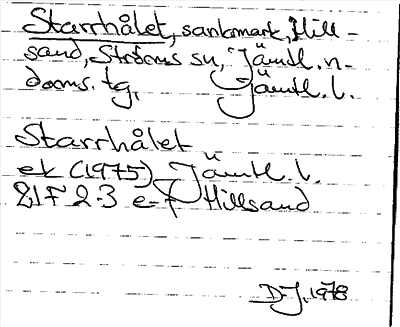 Starrhålet, sankmark, Hill-
sand, Ströms sn, Jämtl. n.
doms. tg, Jämtl. l.
Starrhålet
ek (1975) Jämtl. l.
21F 2-3 e-f Hillsand
D-J, 1978